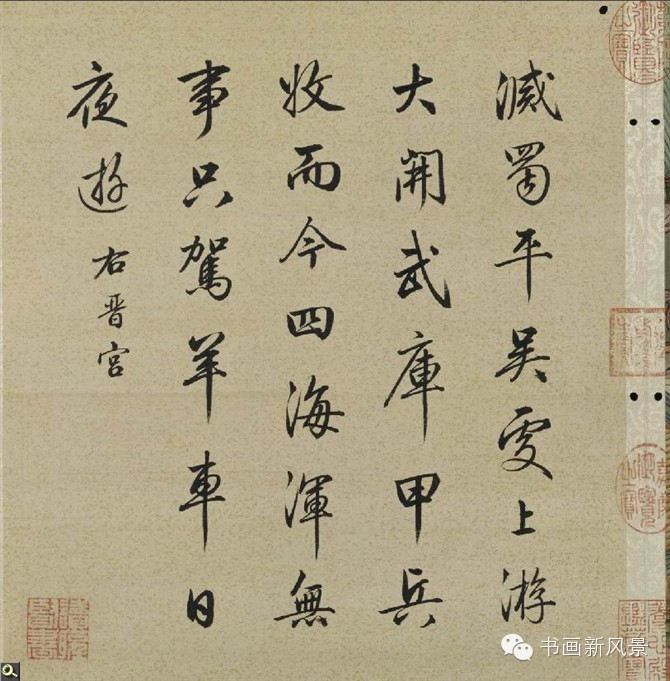 滅蜀平吳上游
大開武庫甲兵
收而今四海渾無
事只駕羊車日
夜遊
右晋宮
书画新风景